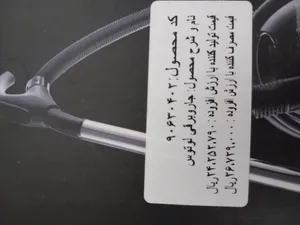 کد محصول: ۹۰۶۳۰۴۰۲
نام و شرح محصول: جاروبرقی لوتوس
قیمت تولید کننده با ارزش افزوده: ۲۴,۲۵۲,۷۹۰ ریال
قیمت مصرف کننده با ارزش افزوده: ۲۶,۷۲۹,۰۰۰ ریال